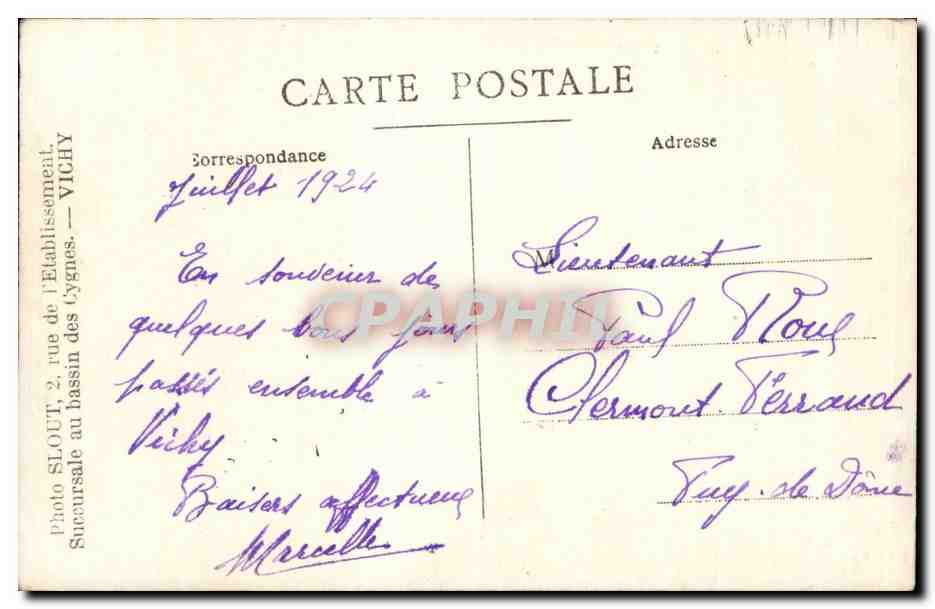 CARTE POSTALE
Correspondance
Juillet 1924
En souvenir de
quelques bons jours
passés ensemble à
Vichy
Baisers affectueux
Marcelle
Adresse
M Lieutenant
Paul Roux
Clermont-Ferrand
Puy-de Dôme
Photo SLOUT, 2, rue de l'Etablissement.
Succursale au bassin des Cygnes. — VICHY
CPAPHIL